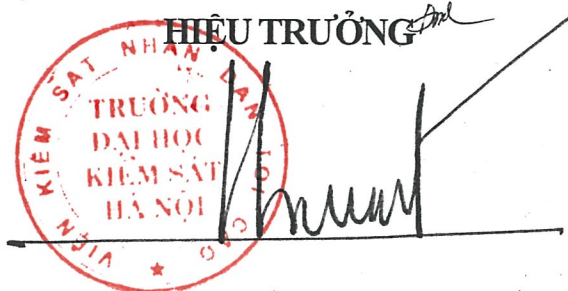 HIỆU TRƯỞNG
VIỆN KIỂM SÁT NHÂN DÂN TỐI CAO
TRƯỜNG
ĐẠI HỌC
KIỂM SÁT
HÀ NỘI